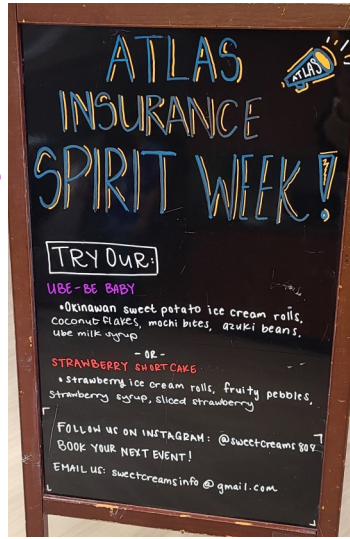 ATLAS
ATLAS
INSURANCE
SPIRIT WEEK!
TRY OUR:
UBE-BE BABY
•Okinawan sweet potato ice cream rolls,
coconut flakes, mochi bites, azuki beans,
ube milk syrup
- OR -
STRAWBERRY SHORTCAKE
• strawberry ice cream rolls, fruity pebbles,
strawberry syrup, sliced strawberry
FOLLOW US ON INSTAGRAM: @sweetcreams808
BOOK YOUR NEXT EVENT!
EMAIL US: sweetcreamsinfo@gmail.com